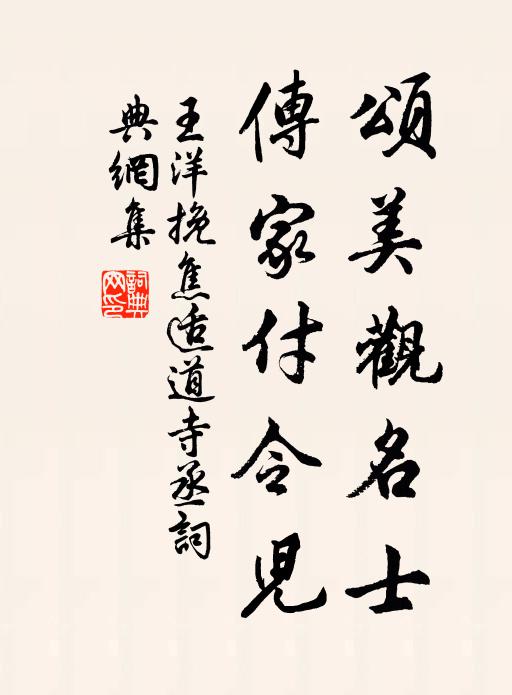 頌美觀名士
傳家付令兒
王洋挽焦适道寺丞詞
典網集
詞典網印